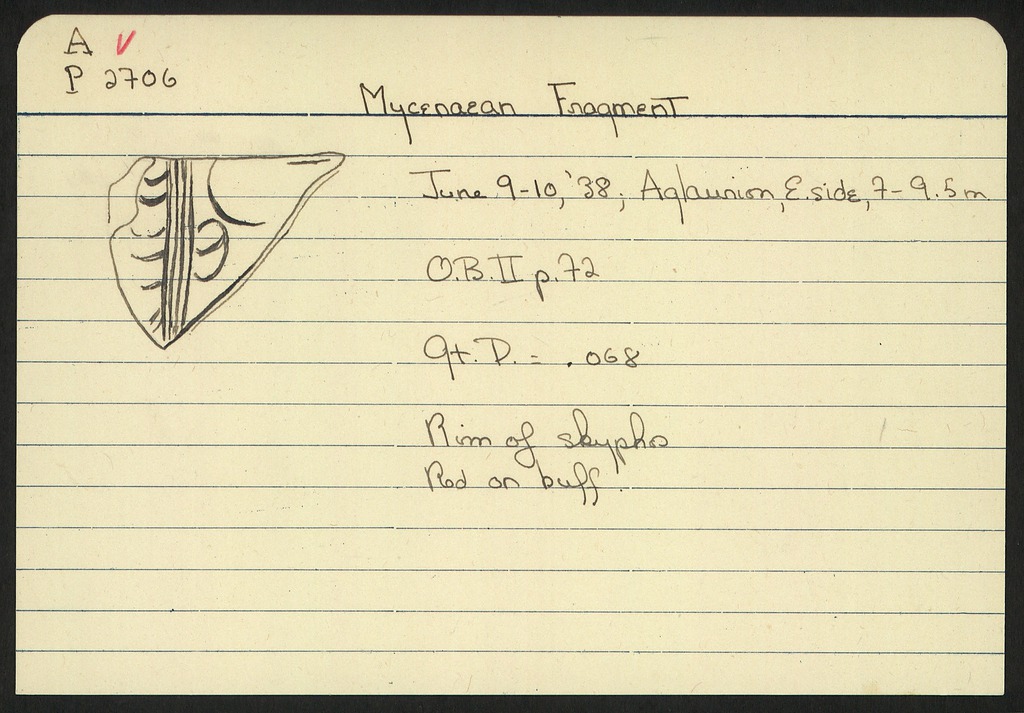 A V
P 2706
Mycenaean Fragment
June 9-10, '38; Aglaurion, E. side, 7-9.5 m.
O.B. II p. 72
Gt. D. = .068
Rim of skyphos
Red on buff.